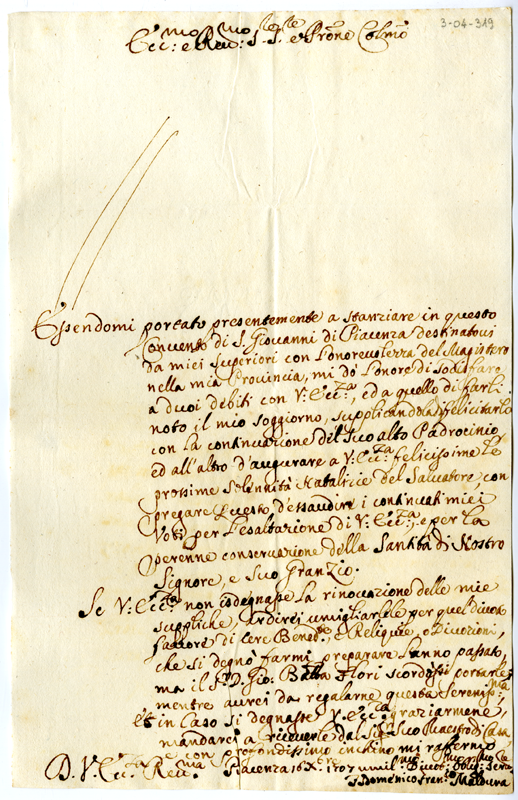 3-04-319
Ecc:mo e Rev:mo Sig.re P.re e Prone Colmo
Essendomi portato presentemente a stanziare in questo
Convento di S. Giovanni di Piacenza destinatovi
da miei Superiori con l'onorevolezza del Magistero
nella mia Provincia, mi dò l'onore di sodisfare
a duoi debiti con V: Ecc:za, ed a quello di farli
noto il mio soggiorno, supplicandola felicitarlo
con la continuazione del suo alto Padrocinio,
ed all'altro d'augurare a V: Ecc:za felicissime le
prossime Solennità Natalizie del Salvatore con
pregare Questo d'essaudire i continuati miei
Voti per l'esaltazione di V: Ecc:za, e per la
perenne conservazione della Santità di Nostro
Signore, e suo Gran Zio.
Se V: Ecc:za non isdegnasse la rinovazione delle mie
suppliche, Ardirei umigliarlele per quel divoto
favore di Cere Bened:te, e Reliquie, o Divozioni,
che si degnò farmi preparare l'anno passato,
ma il S:r D. Gio: Batta Flori scordossi portarle
mentre avrei da regalarne questa Sereniss:ma
et in Caso si degnasse V: Ecc:za graziarmene,
mandarei a riceverle dal suo Maestro di Casa
e con profondissimo inchino mi raffermo
D. V: Ecc:za Rev:ma
Piacenza 16 Xbre 1707 umil:mo Divot:mo Oblig:mo Serv:re
F. Domenico Fran:co Maldura